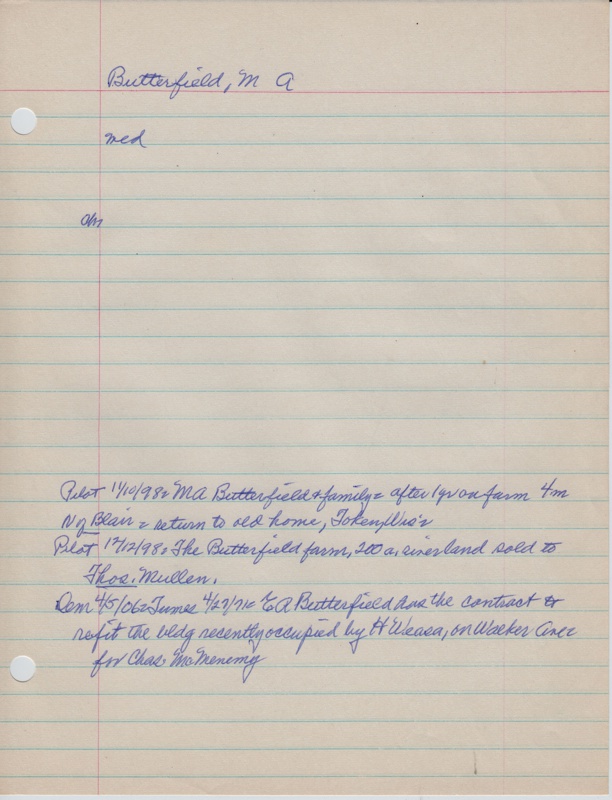 Butterfield, M A
med
ch
Pilot 11/10/98= MA Butterfield & family= after 1 yr on farm 4m
N of Blair = return to old home, Token, Wis=
Pilot 1/12/98= The Butterfield farm, 200 a, river land sold to
Thos. Mullen.
Dem 4/5/06= Times 4/27/71= A Butterfield has the contract to
refit the bldg recently occupied by H Weasa, on Walker Ave=
for Chas. McMenemy